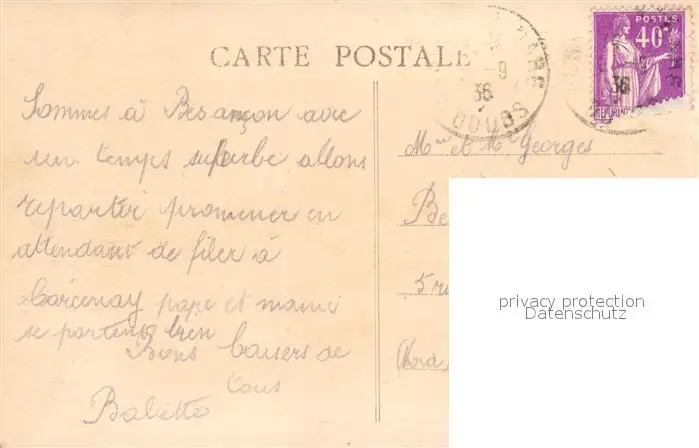 CARTE POSTALE
POSTES
40c
9
36
DOUBS
36
Sommes à Besançon avec
un temps superbe allons
repartir promener en
attendant de filer à
papi et mami
se portent bien
Bons baisers de
tous
Babette
Mme et Mr Georges
Be
5 ru
(Nord
privacy protection
Datenschutz